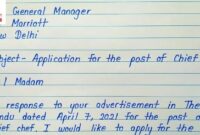 General Manager
Marriott
w Delhi
bject- Application for the post of Chief
/ Madam
response to your advertisement in The
ndu dated April 7, 2021 for the post of
ief chef, I would like to apply for the